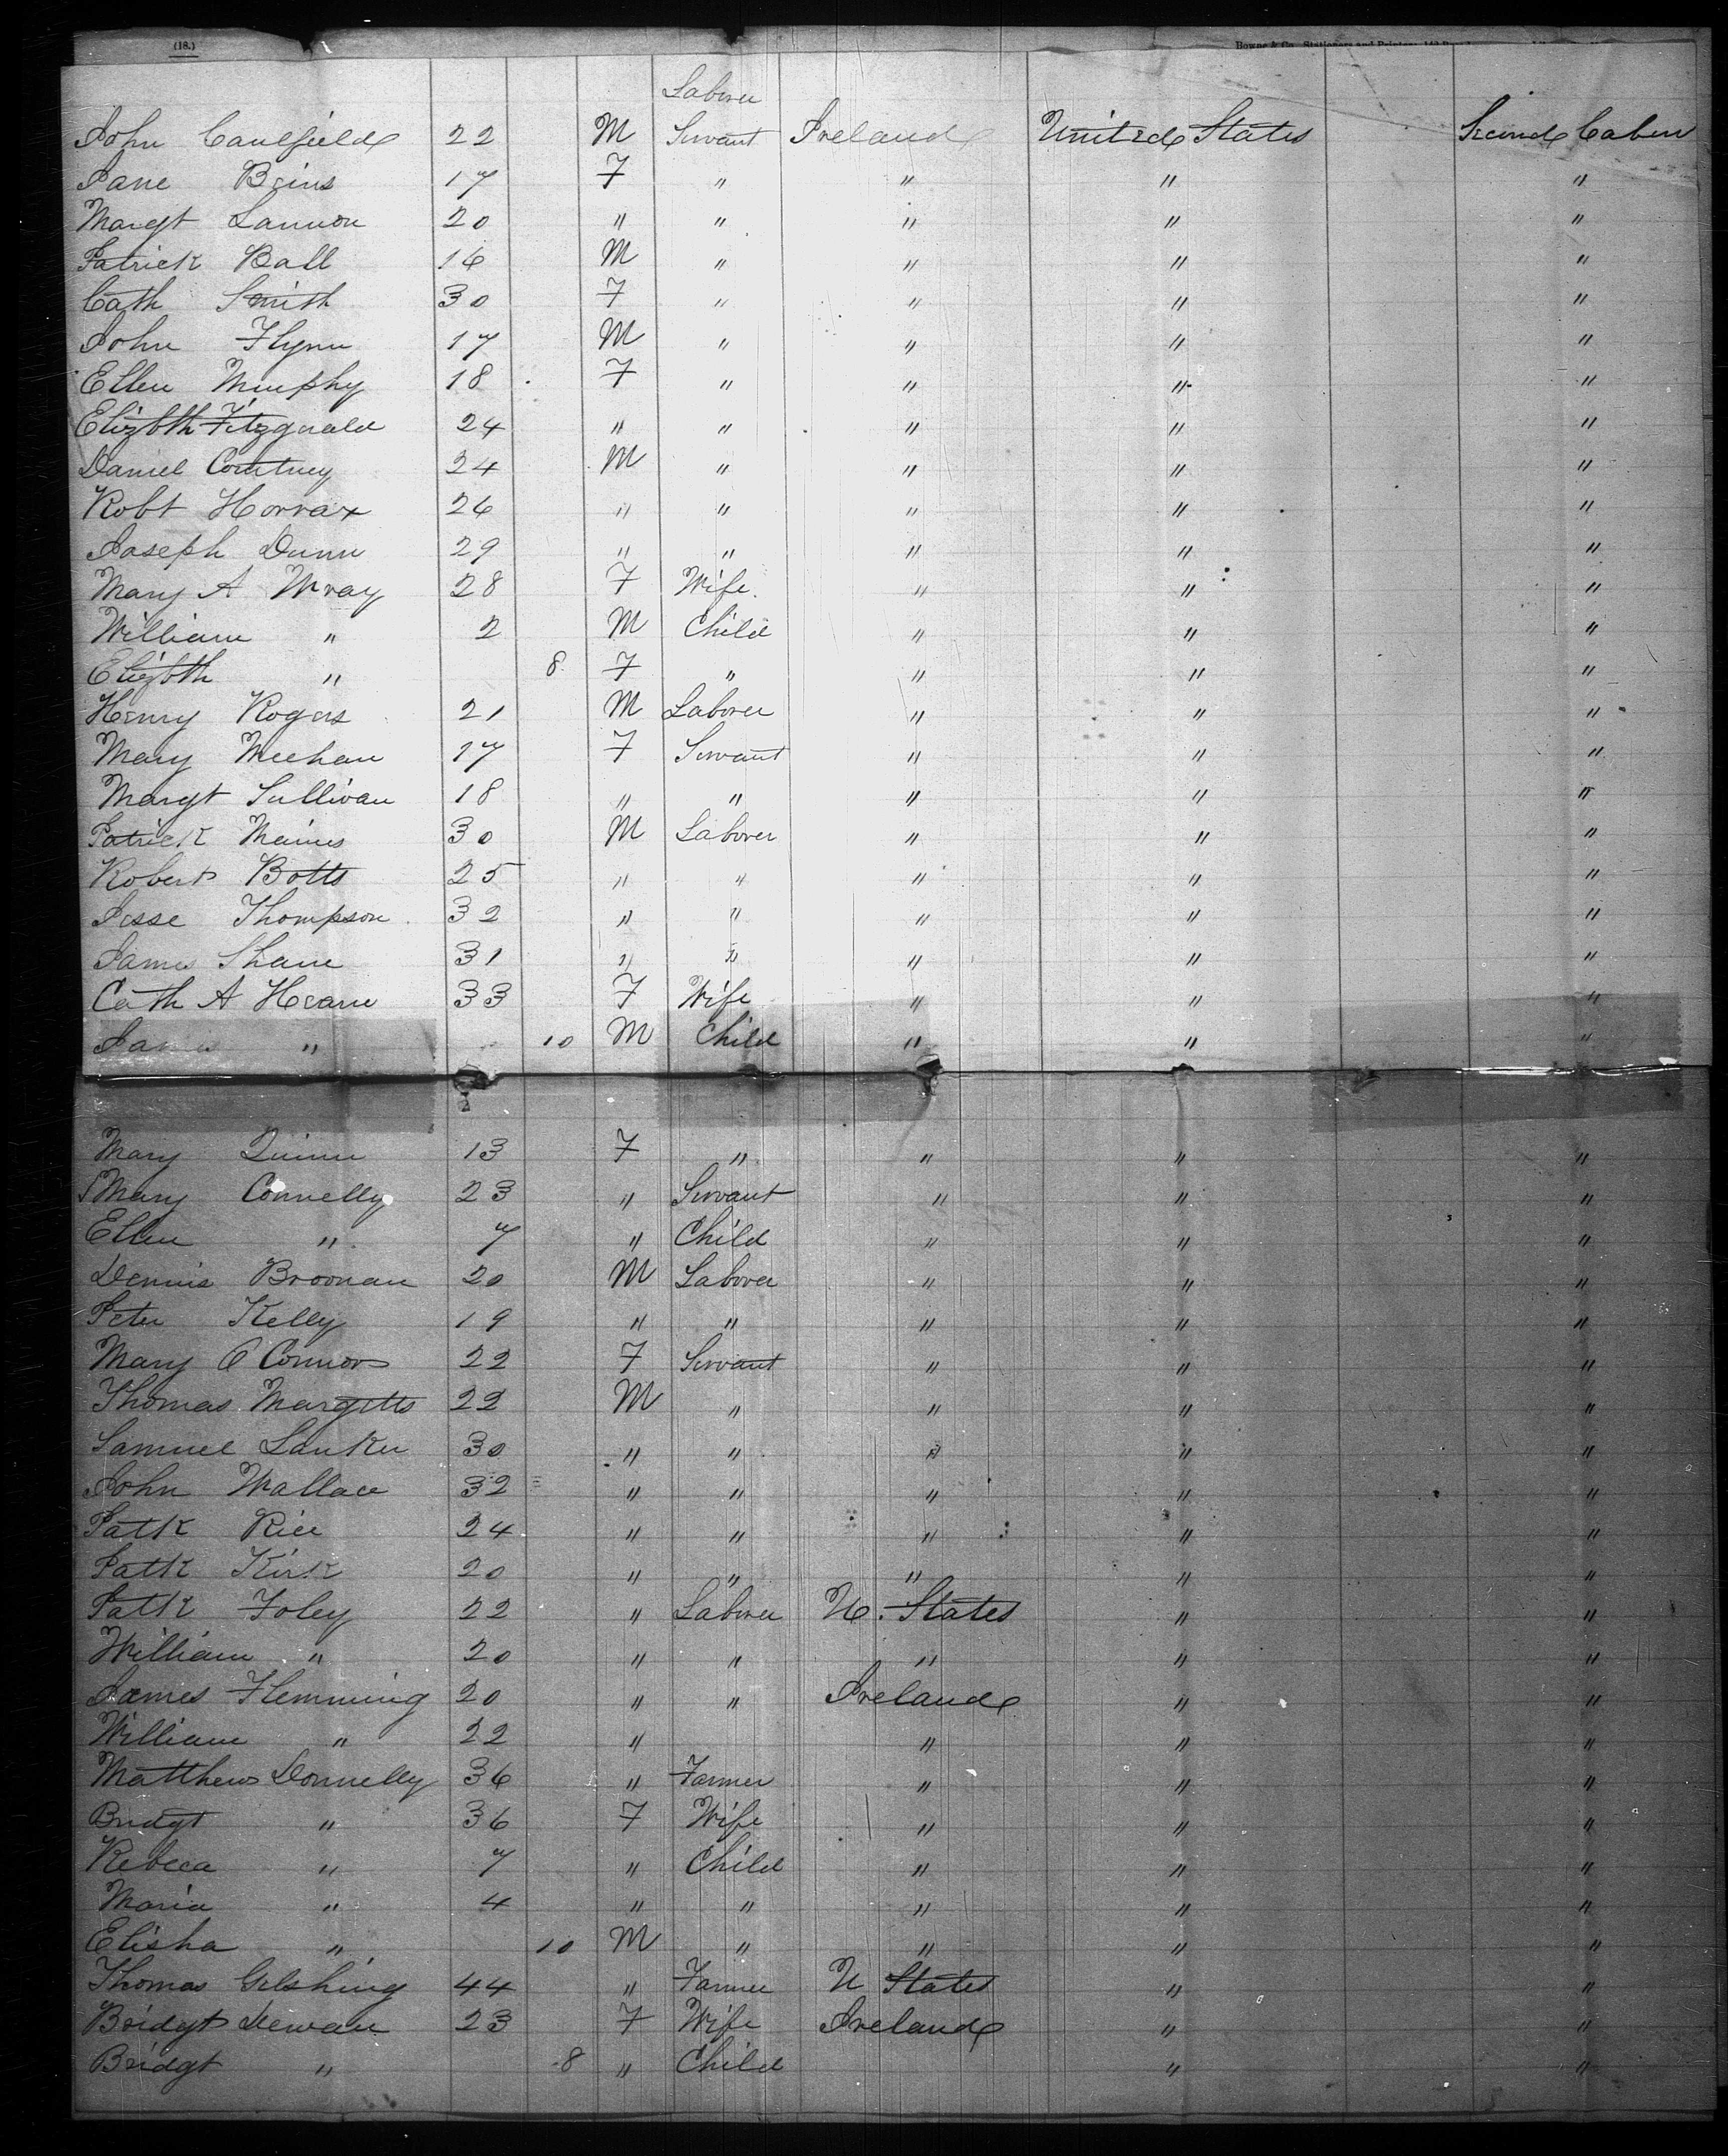 (18.) Bowne & Co., Stationers and Printers
Laborer
John Caulfield 22 M Servant Ireland United States Second Cabin
Jane Beins 17 F " " " "
Margt Lannon 20 " " " " "
Patrick Ball 16 M " " " "
Cath Smith 30 F " " " "
John Flynn 17 M " " " "
Ellen Murphy 18 F " " " "
Elizbth Fitzgerald 24 " " " " "
Daniel Courtney 24 M " " " "
Robt Horrax 26 " " " " "
Joseph Dunn 29 " " " " "
Mary A Wray 28 F Wife " " "
William " 2 M Child " " "
Elizbth " 8 F " " " "
Henry Rogers 21 M Laborer " " "
Mary Meehan 17 F Servant " " "
Margt Sullivan 18 " " " " "
Patrick Meines 30 M Laborer " " "
Robert Botts 25 " " " " "
Jesse Thompson 32 " " " " "
James Shane 31 " " " " "
Cath A Hearn 33 F Wife " " "
James " 10 M Child " " "
Mary Quinn 13 F " " " "
Mary Connelly 23 " Servant " " "
Ellen " 7 " Child " " "
Dennis Broonan 20 M Laborer " " "
Peter Kelly 19 " " " " "
Mary O Connor 22 F Servant " " "
Thomas Margetts 22 M " " " "
Samuel Lanker 30 " " " " "
John Wallace 32 " " " " "
Patk Rice 24 " " " " "
Patk Kirk 20 " " " " "
Patk Foley 22 " Laborer U. States " "
William " 20 " " " " "
James Flemming 20 " " Ireland " "
William " 22 " " " "
Matthew Donnelly 36 " Farmer " " "
Bridgt " 36 F Wife " " "
Rebeca " 7 " Child " " "
Maria " 4 " " " " "
Elisha " 10 M " " " "
Thomas Gelshing 44 " Farmer U States " "
Bridgt Dewan 23 F Wife Ireland " "
Bridgt " 8 " Child " "